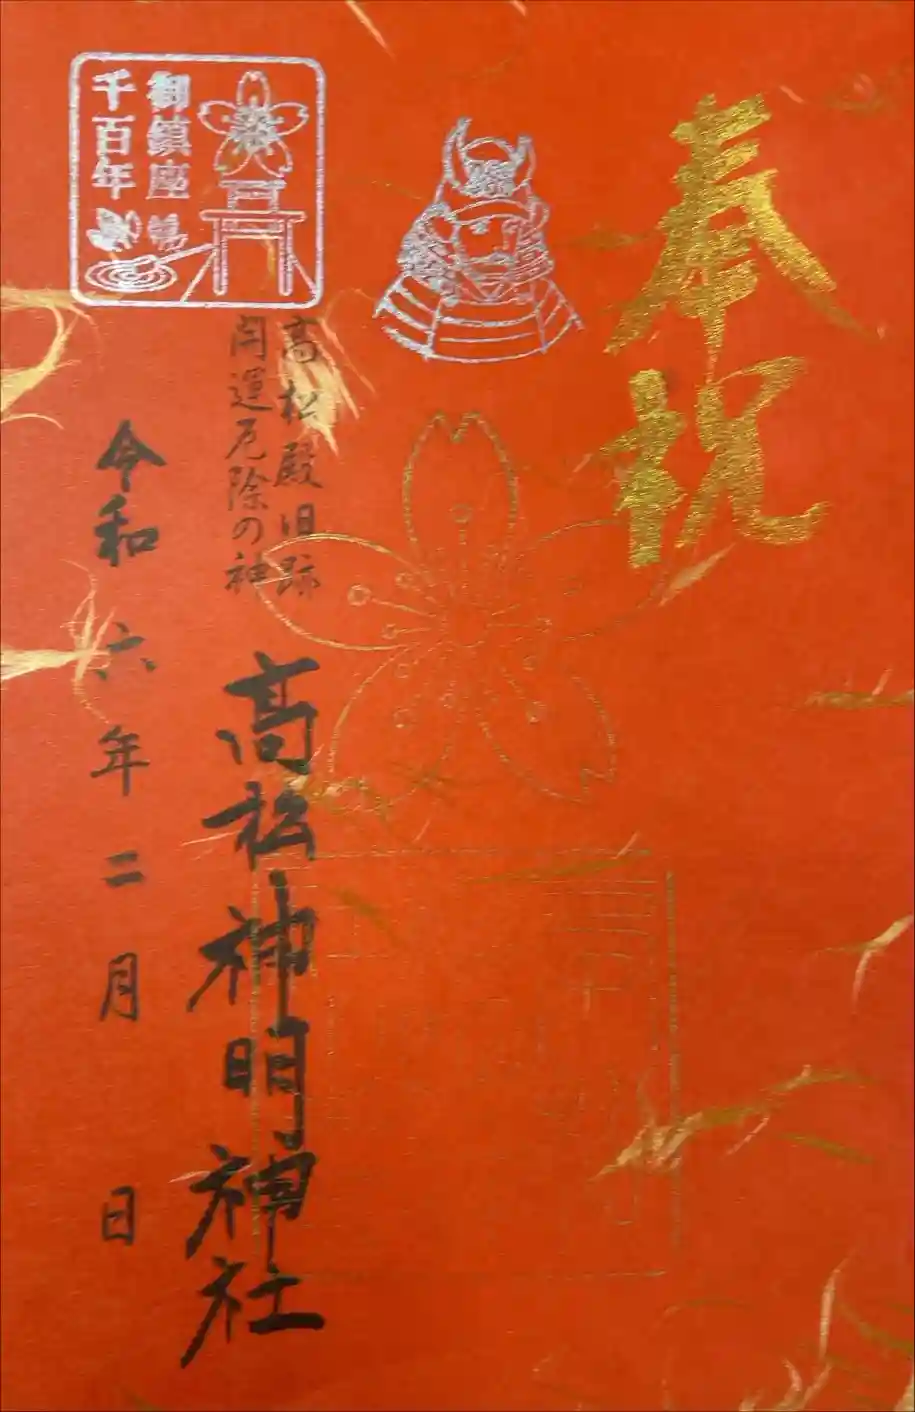 奉祝
御鎮座
千百年
高松殿旧跡
開運厄除の神
高松神明神社
令和六年二月 日